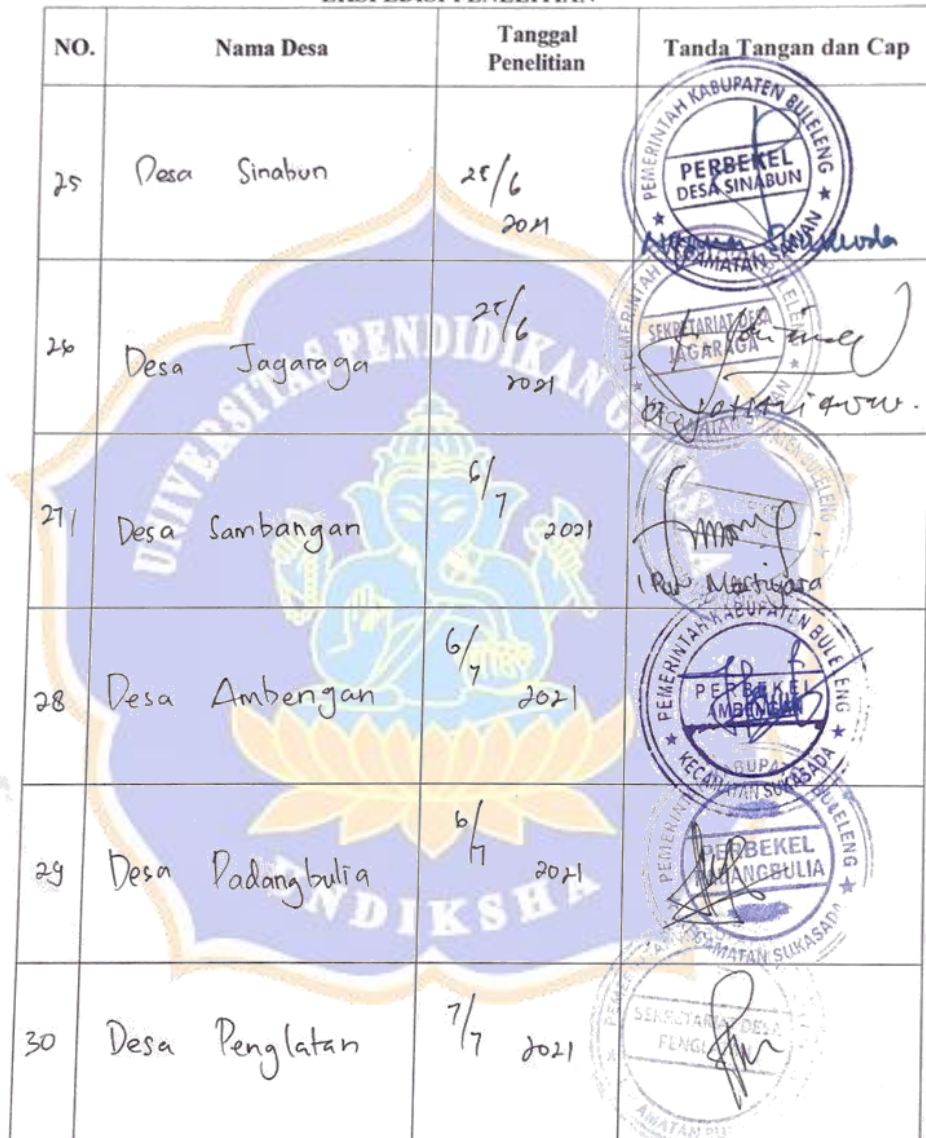 NO. Nama Desa Tanggal Penelitian Tanda Tangan dan Cap
25 Desa Sinabun 25/6 2021
PEMERINTAH KABUPATEN BULELENG
PERBEKEL
DESA SINABUN
26 Desa Jagaraga 25/6 2021
SEKRETARIAT DESA
JAGARAGA
27 Desa Sambangan 6/7 2021
28 Desa Ambengan 6/7 2021
PEMERINTAH KABUPATEN BULELENG
PERBEKEL
AMBENGAN
KECAMATAN SUKASADA
29 Desa Padangbulia 6/7 2021
PERBEKEL
PADANGBULIA
KECAMATAN SUKASADA
30 Desa Penglatan 7/7 2021
SEKRETARIAT DESA
PENGLATAN
UNIVERSITAS PENDIDIKAN GANESHA
UNDIKSHA